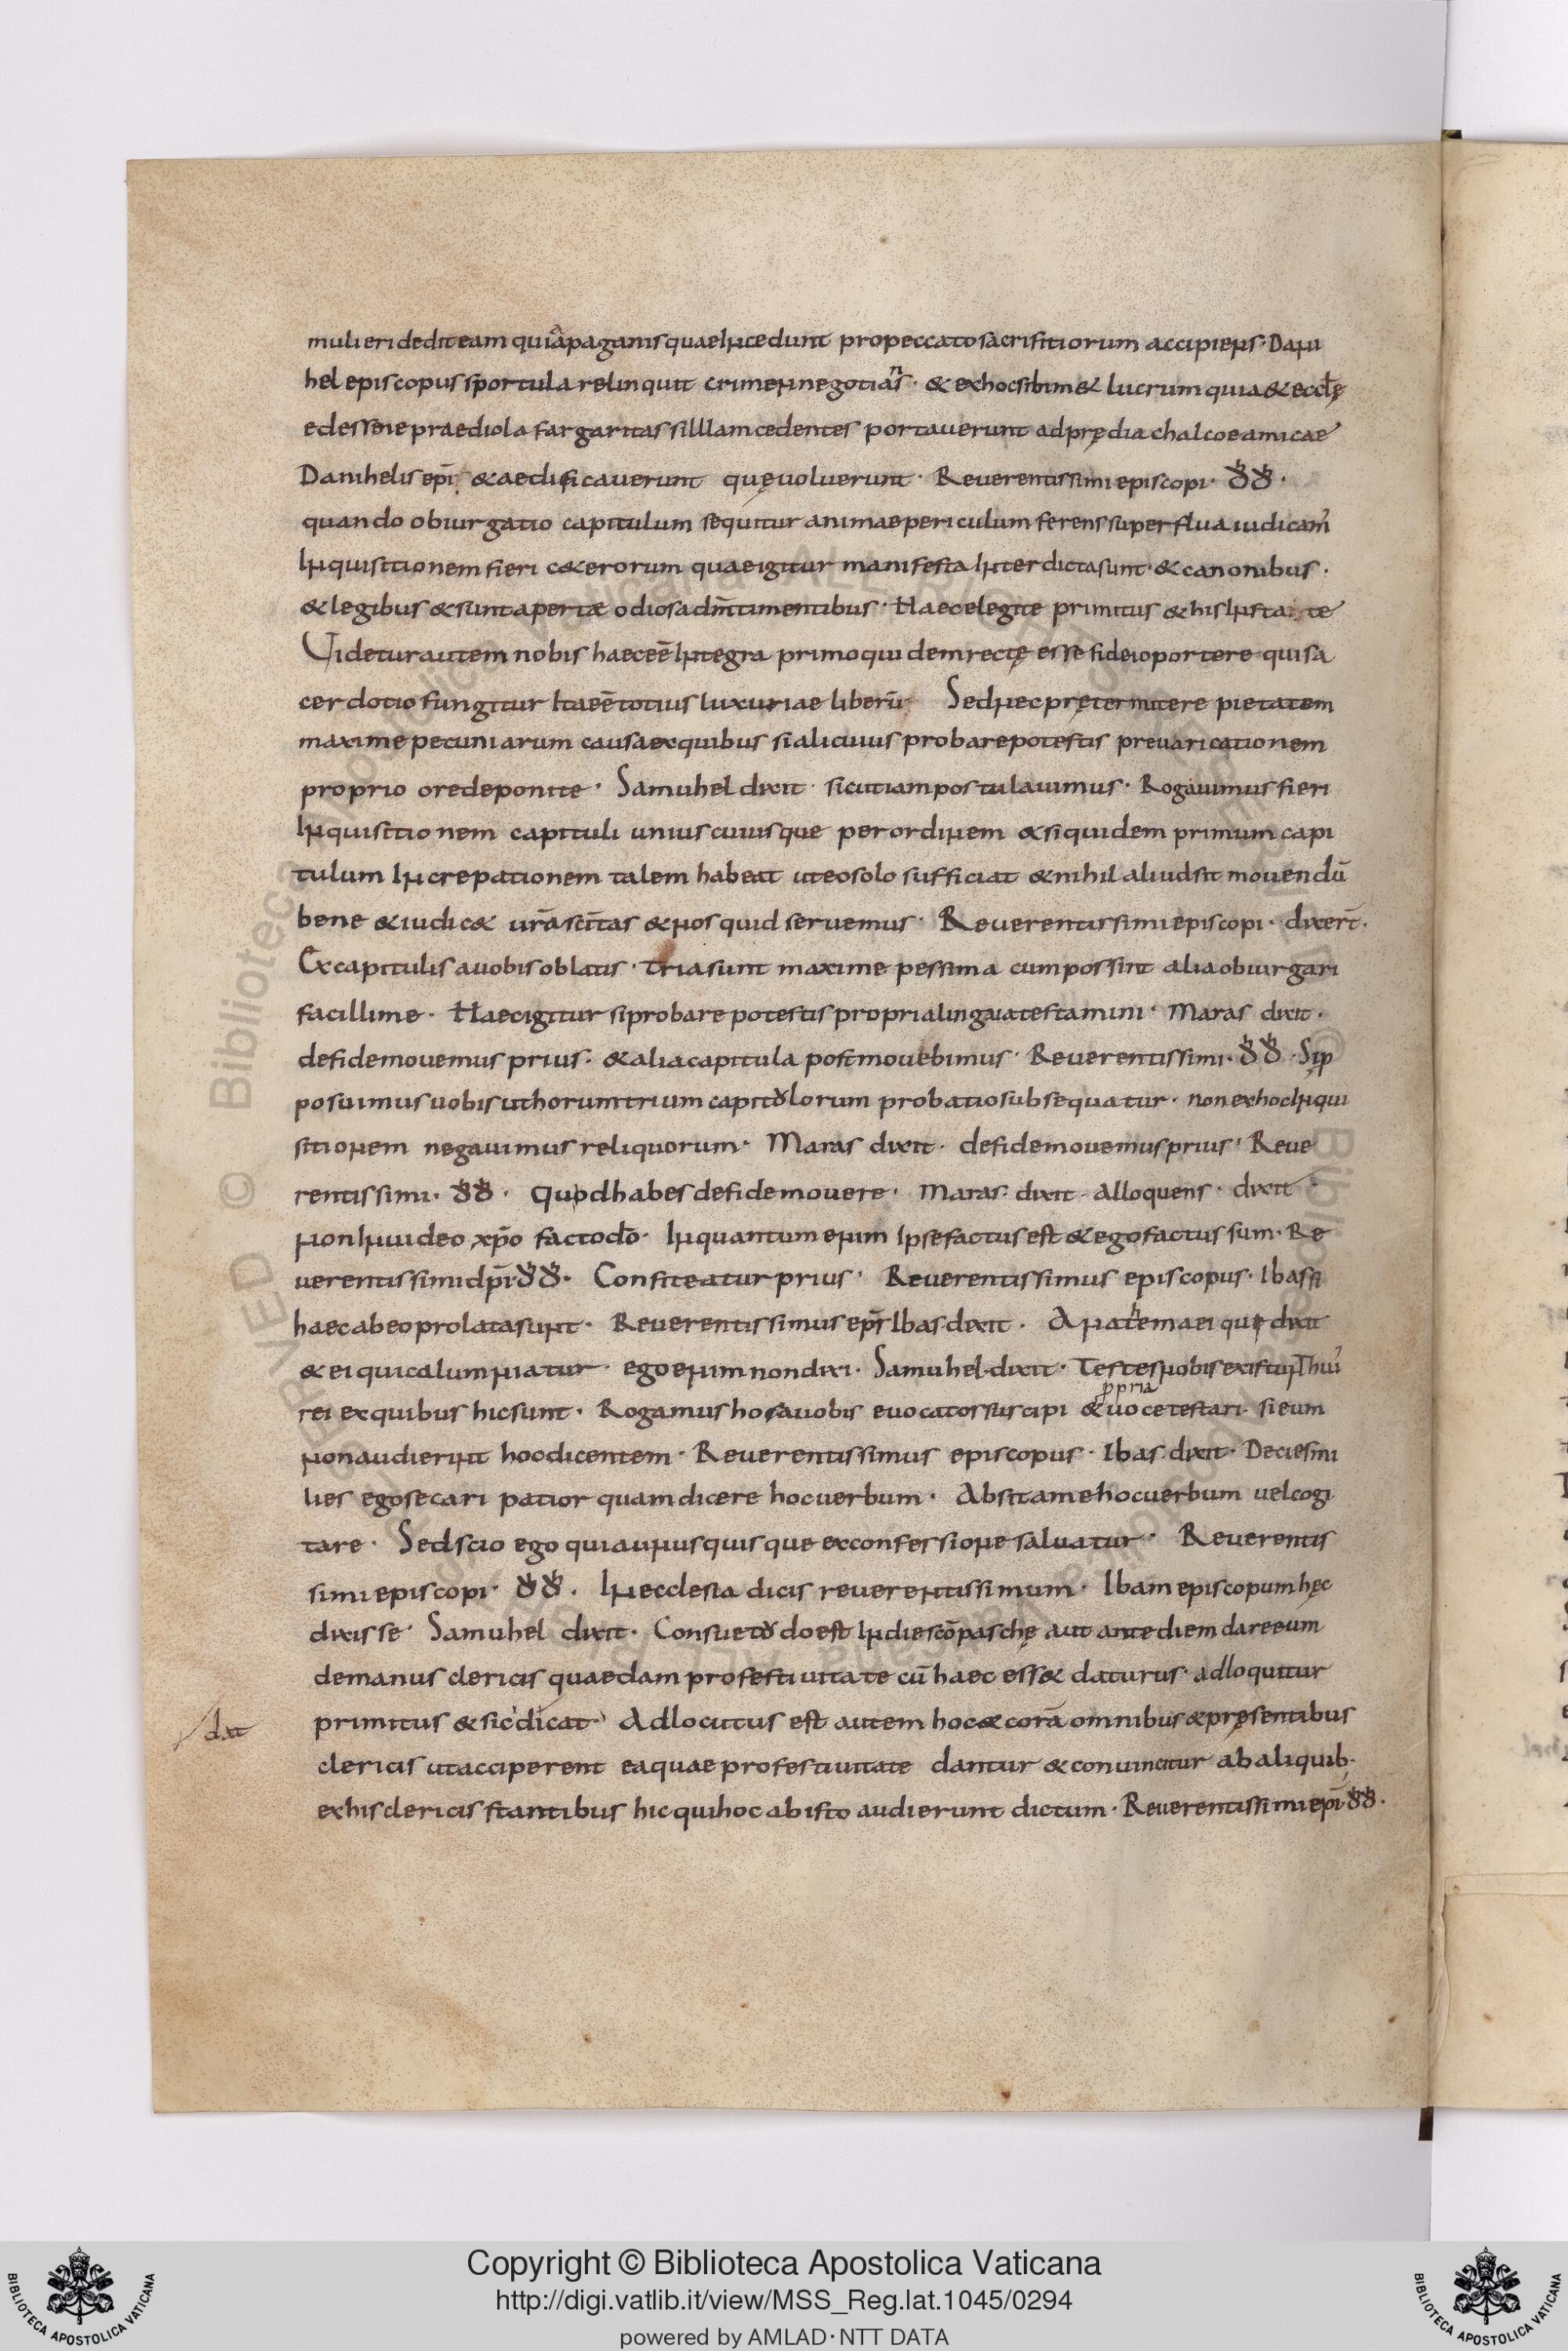 mulieri dedit eam quia a paganis quae incedunt pro peccato sacrifitiorum accipiens· Dani
hel episcopus sportula relinquit crimen negotians· & ex hoc sibi m& lucrum quia & eccłę
edessene praediola fargaritas silllam cedentes portaverunt ad prędia chalcoe amicae
Danihelis epī· & aedificaverunt quę voluerunt· Reverentissimi episcopi· ꝺꝺ·
quando obiurgatio capitulum sequitur animae periculum ferens superflua iudicam̄
Inquisitionem fieri c&erorum quae igitur manifesta Interdicta sunt· & canonibus·
& legibus & sunt apertae odiosa dm̄ timentibus· Haec elegite primitus & his Instante
Videtur autem nobis haec eē Integra primo quidem rectę esse fidei oportere qui sa
cerdotio fungitur Ita eē totius luxuriae liberū· Sed nec prętermitere pietatem
maxime pecuniarum causa ex quibus si alicuius probare potestis prevaricationem
proprio ore deponite· Samuhel dixit· sicut iam postulavimus· Rogavimus fieri
Inquisitionem capituli uniuscuiusque per ordinem & siquidem primum capi
tulum Increpationem talem habeat ut eo solo sufficiat & nihil aliud sit movendū
bene & iudic& vrā scītas & nos quid servemus· Reverentissimi episcopi· dixer̄t·
Ex capitulis a vobis oblatis· tria sunt maxime pessima cum possint alia obiurgari
facillime· Haec igitur si probare potestis propria lingua testamini· Maras dixit·
de fide movemus prius· & alia capitula post movebimus· Reverentissimi· ꝺꝺ· Sic p
posuimus vobis ut horum trium capitulorum probatio subsequatur· non ex hoc Inqui
sitionem negavimus reliquorum· Maras dixit· de fide movemus prius· Reve
rentissimi· ꝺꝺ· Quod habes de fide movere· Maras· dixit· Alloquens· dixit·
non Invideo xp̄o facto dō· Inquantum enim Ipse factus est & ego factus sum· Re
verentissimi dp̄i· ꝺꝺ· Confiteatur prius· Reverentissimus episcopus· Ibas si
haec ab eo prolata sunt· Reverentissimus ep̄s Ibas dixit· Anathema ei quę dixit
& ei qui calumniatur· ego enim non dixi· Samuhel· dixit· Testes nobis existunt hui
rei ex quibus hic sunt· Rogamus hos a vobis evocatos suscipi & ꝓpria voce testari· si eum
non audierint hoc dicentem· Reverentissimus episcopus· Ibas· dixit· Deciesmi
lies ego secari patior quam dicere hoc verbum· Absit a me hoc verbum vel cogi
tare· Sed scio ego quia unusquisque ex confessione salvatur· Reverentis
simi episcopi· ꝺꝺ· In ecclesia dicis reverentissimum· Ibam episcopum hęc
dixisse· Samuhel dixit· Consuetudo est In die scō paschę aut ante diem dare eum
de manus clericis quaedam pro festivitate cū haec ess& daturus· adloquitur
primitus & sic dicat· Adlocutus est autem hoc & corā omnibus & pręsentibus
dxt
clericis ut acciperent ea quae pro festivitate dantur & convincitur ab aliquib;
ex his clericis stantibus hic qui hoc ab isto audierunt dictum· Reverentissimi epī ꝺꝺ·
© Biblioteca Apostolica Vaticana
Copyright © Biblioteca Apostolica Vaticana
http://digi.vatlib.it/view/MSS_Reg.lat.1045/0294
powered by AMLAD·NTT DATA
BIBLIOTECA APOSTOLICA VATICANA
BIBLIOTECA APOSTOLICA VATICANA